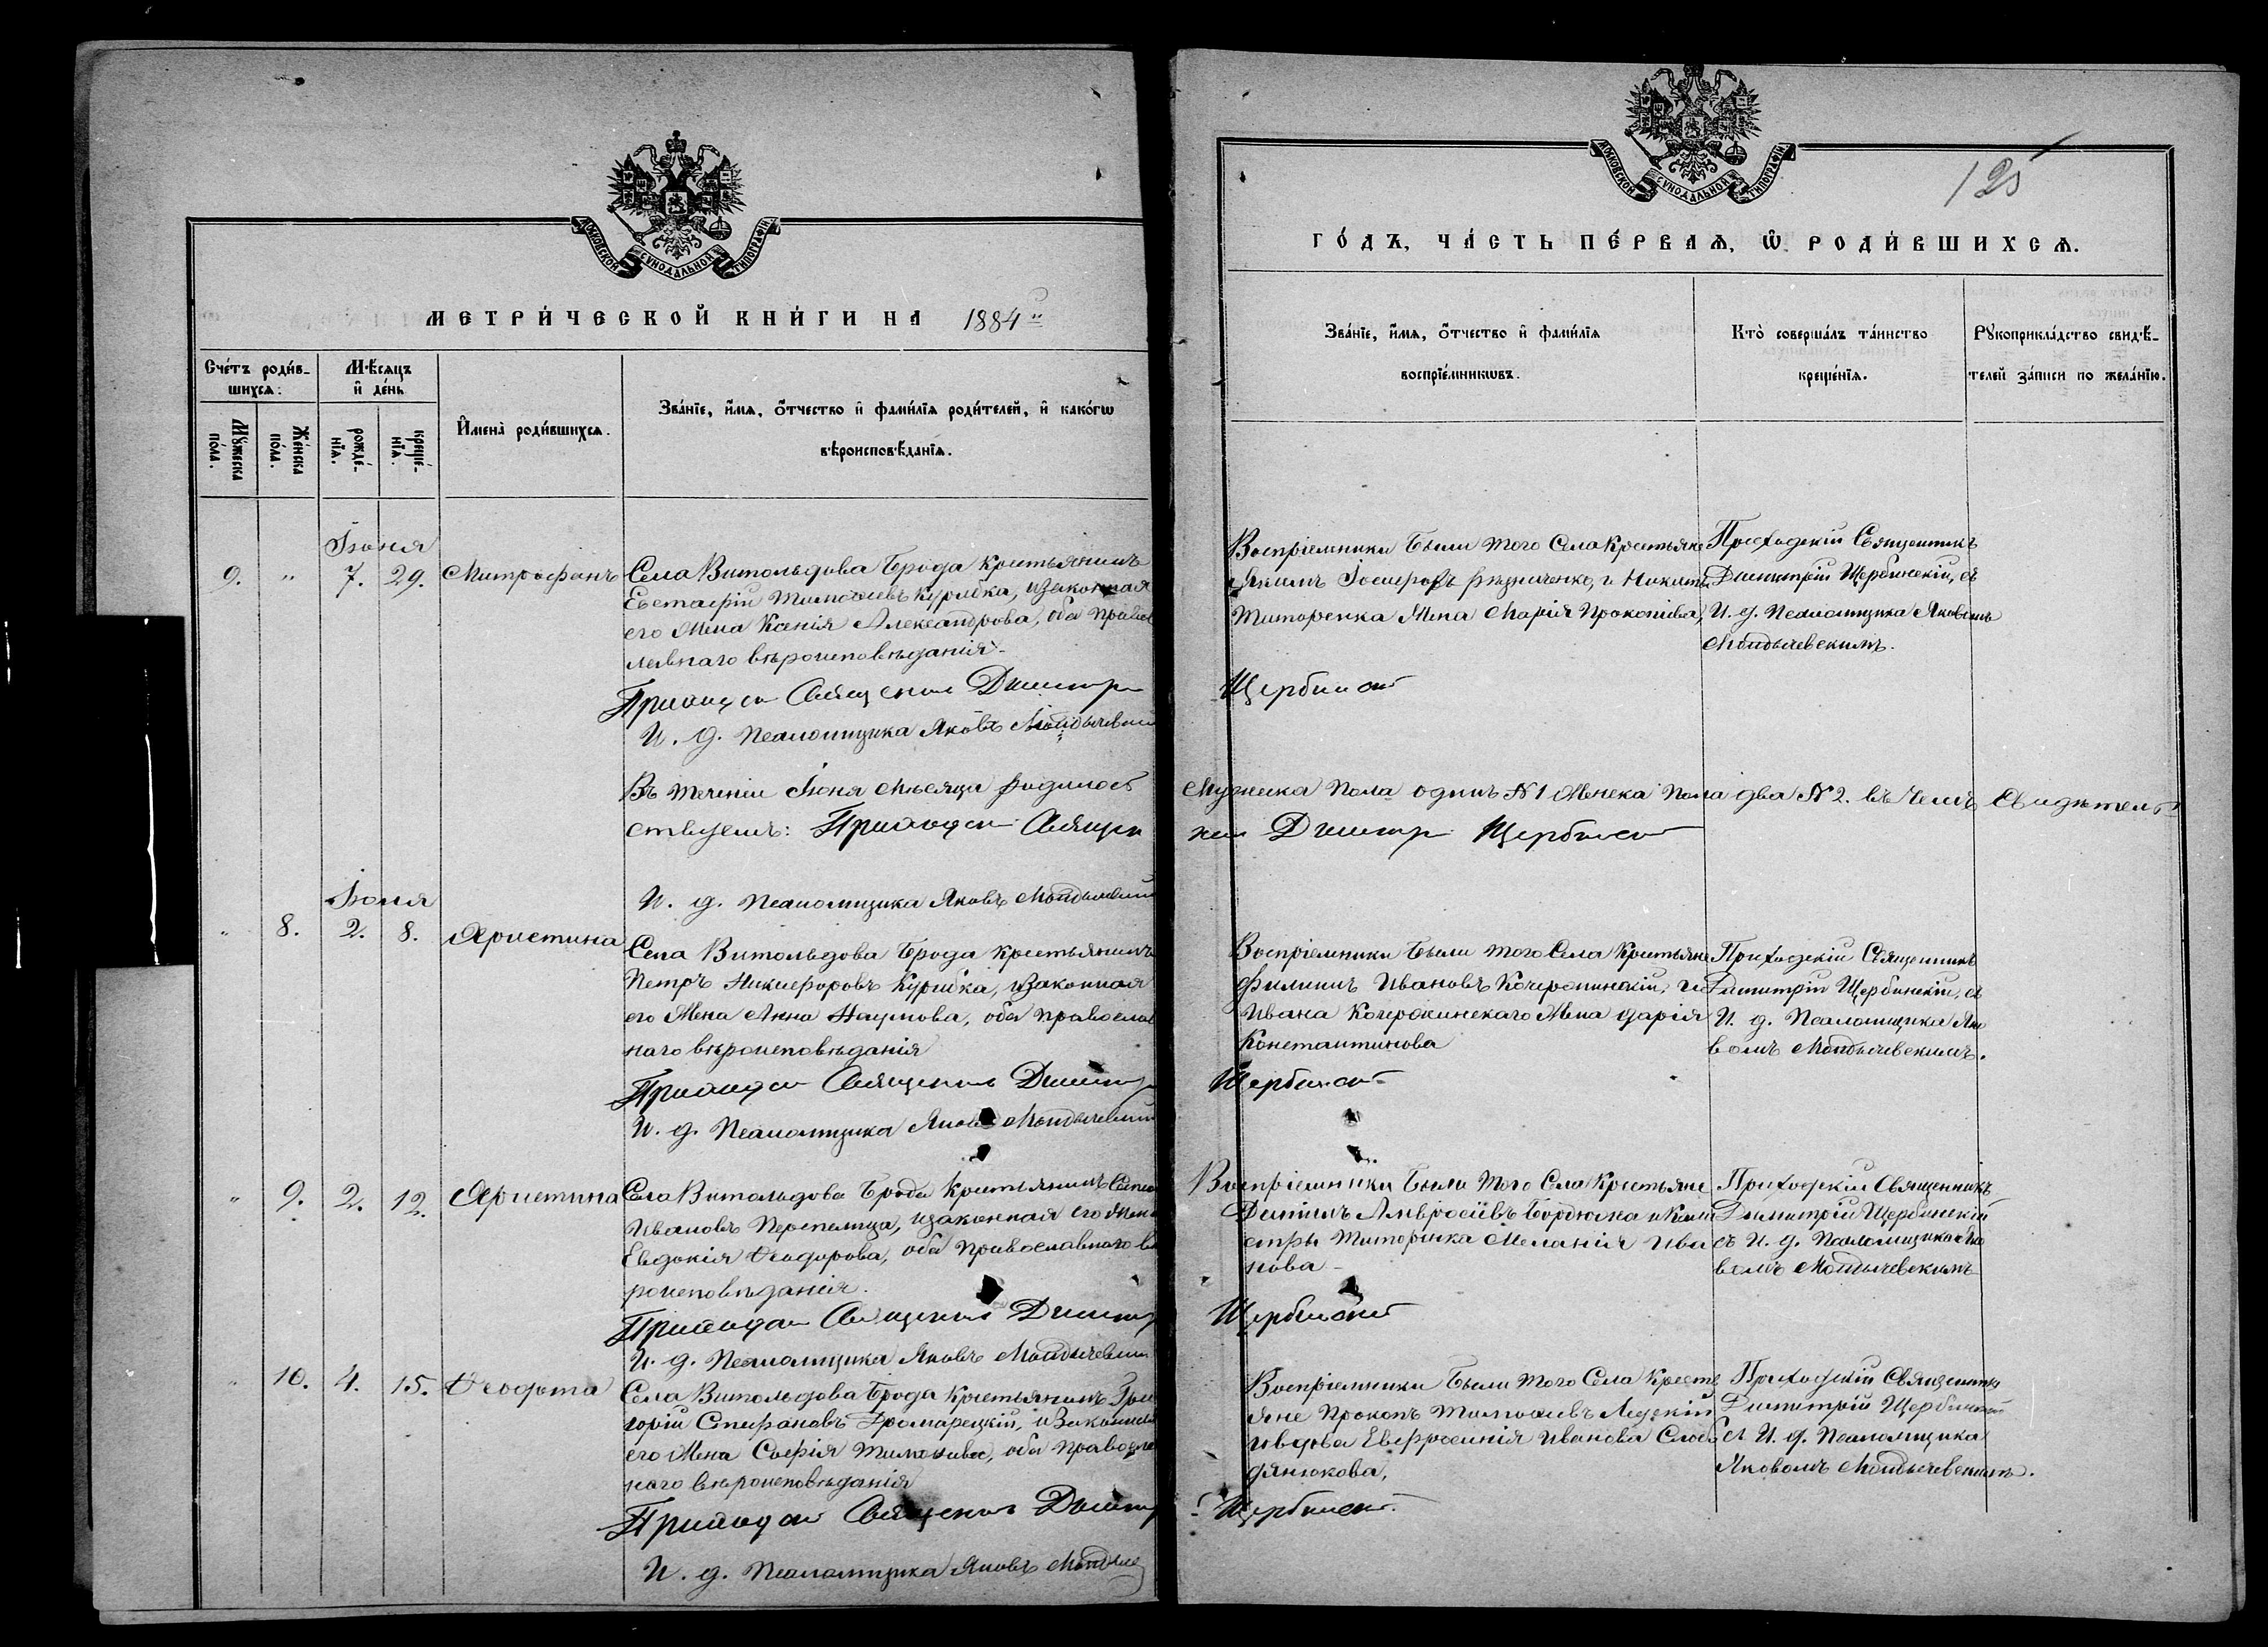 МОСКОВСКОЙ СУНОДАЛЬНОЙ ТИПОГРАФІИ
МЕТРИ́ЧЕСКОЙ КНИ́ГИ НА 1884й
Сче́тъ роди́в-
шихсѧ:
Мѣ́сѧцъ
и҆ де́нь
Мꙋ́жеска
по́ла.
Же́нска
по́ла.
рожде́-
нїѧ.
креще́-
нїѧ.
И҆мена̀ роди́вшихсѧ.
Зва́нїе, и҆́мѧ, ѻ҆́тчество и҆ фами́лїѧ роди́телей, и҆ како́гѡ
вѣроисповѣ́данїѧ.
Іюня
9. " 7. 29. Митрофанъ
Села Витольдова Брода крестьянинъ
Евстафій Тимофеевъ Курибка, и законная
его Жена Ксенія Александрова, оба правос
лавнаго вѣроисповѣданія.
Приходск Священник Димитри
И. д. Псаломщика Яковъ
Въ теченіи Іюня Мѣсяца родилось
ствуемъ: Приходск Священ
И. д. Псаломщика Яковъ
Іюля
" 8. 2. 8. Христина
Села Витольдова Брода крестьянинъ
Петръ Никифоровъ Курибка, и законная
его Жена Анна Наумова, оба православ
наго вѣроисповѣданія
Приходск Священник Димитр
И. д. Псаломщика Яковъ
" 9. 2. 12. Христина
Села Витольдова Брода Крестьянинъ
Ивановъ Перепелица, и законная его Жена
Евдокія Ѳеодорова, оба православнаго вѣ
роисповѣданія.
Приходск Священник Димитр
И. д. Псаломщика Яковъ
" 10. 4. 15. Ѳеофота
Села Витольдова Брода Крестьянинъ Гри
горій Стефановъ Громарецкій, и Законная
его Жена Софія Тимофеева, оба правосла
наго вѣроисповѣданія
Приходск Священник Димитр
И. д. Псаломщика Яковъ
МОСКОВСКОЙ СУНОДАЛЬНОЙ ТИПОГРАФІИ
125
ГО́ДЪ, ЧА́СТЬ ПЕ́РВАѦ, Ѡ҆ РОДИ́ВШИХСѦ.
Зва́нїе, и҆́мѧ, ѻ҆́тчество и҆ фами́лїѧ
воспрїе́мникѡвъ.
Кто̀ соверша́лъ та́инство
креще́нїѧ.
Рꙋкоприкла́дство свидѣ́-
телей за́писи по жела́нїю.
Воспріемники были того Села Крестьяне
Якимъ Іосифовъ и Никиты
Титоренка Жена Марія Прокопіева,
Приходскій Священникъ
Димитрій Щербинскій, съ
И. д. Псаломщика Яковомъ
Щербинск
Мужеска Пола одинъ №1 Женска Пола два №2. въ чемъ Свидѣтель
ник Димитр Щербинск
Воспріемники были того Села Крестьяне
Филиппъ Ивановъ Кочерокинскій, и
Ивана Кочерокинскаго Жена Дарія
Константинова
Приходскій Священникъ
Димитрій Щербинскій, съ
И. д. Псаломщика Яко
вомъ
Щербинск
Воспріемники были того Села Крестьяне
Амвросіевъ Бордюжа и
стры Титоринка Меланія Ива
нова
Приходскій Священникъ
Димитрій Щербинскій
съ И. д. Псаломщика Яко
вомъ
Щербинск
Воспріемники были того Села Кресть
яне Прокопъ Тимофеевъ Ледскій
и вдова Евфросинія Иванова Слобо
дянюкова,
Приходскій Священник
Димитрій Щербинскій
съ И. д. Псаломщика
Яковомъ
Щербинск.